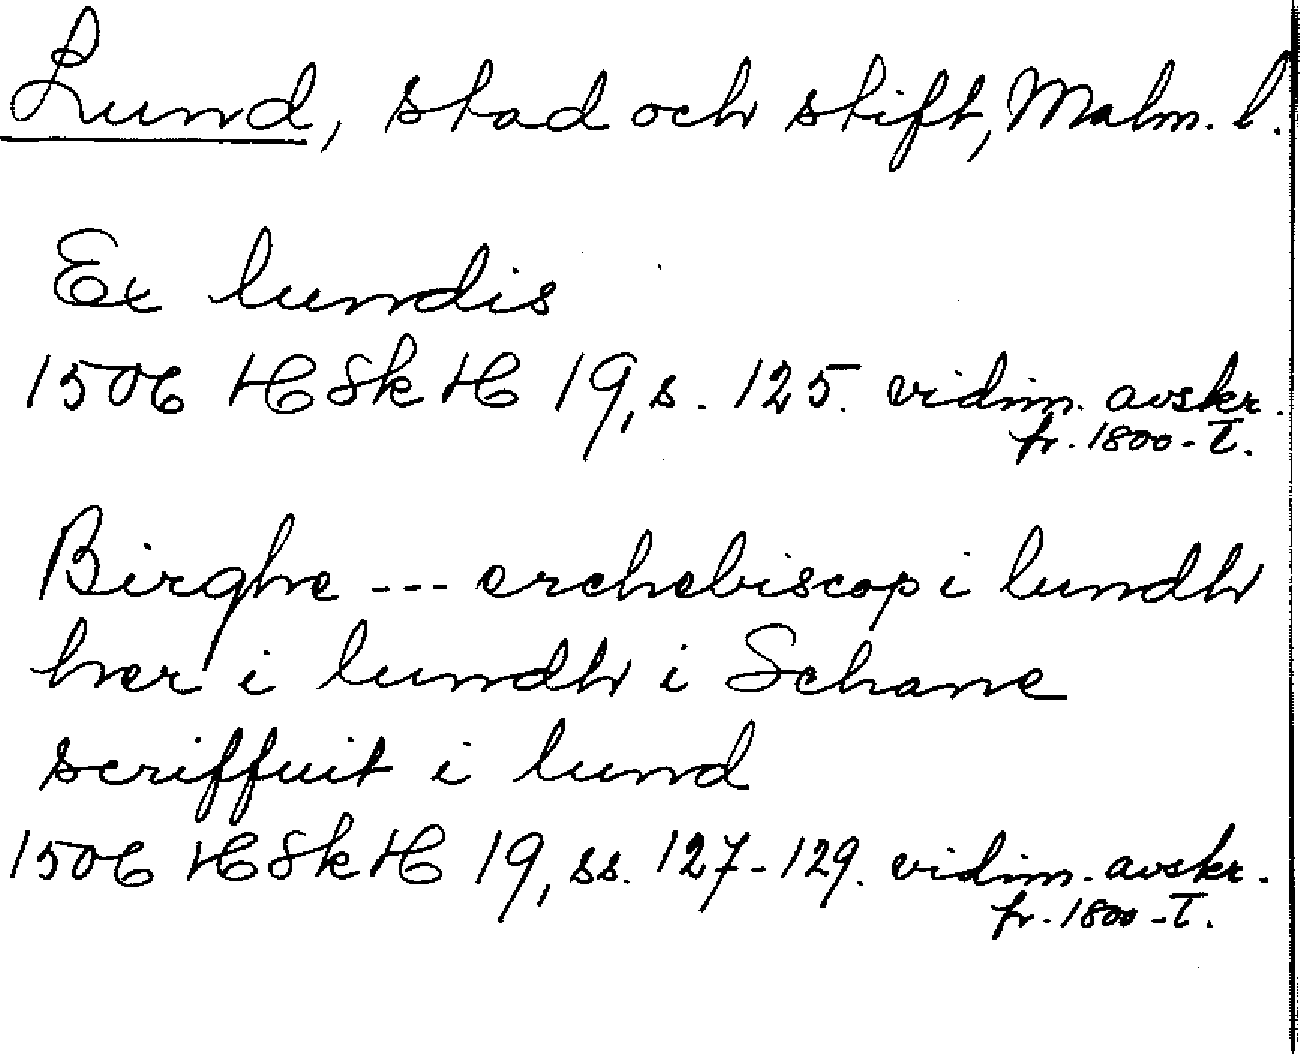 Lund, stad och stift, Malm. l.
Ex lundis
1506 HSkH 19, s. 125. vidim. avskr.
fr. 1800-T.
Birghe --- erchebiscop i lundh
her i lundh i Schane
scriffuit i lund
1506 HSkH 19, ss. 127-129. vidim. avskr.
fr. 1800-T.